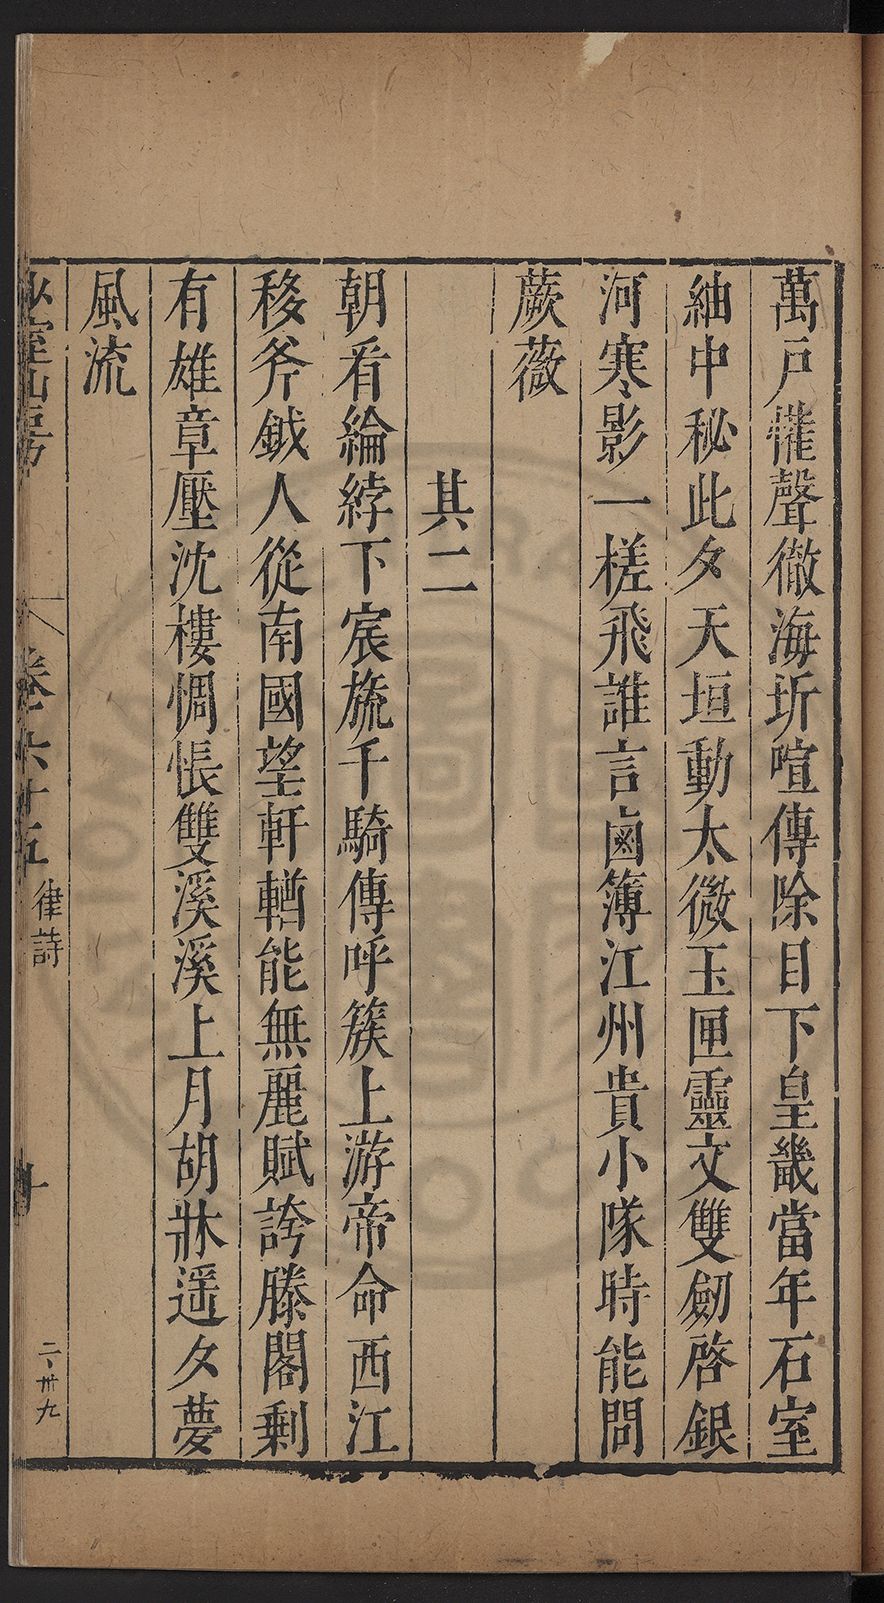 萬戸懽聲徹海圻喧傳除目下皇畿當年石室
紬中秘此夕天垣動太微玉匣靈文雙劒啓銀
河寒影一槎飛誰言鹵簿江州貴小隊時能問
蕨薇
其二
朝看綸綍下宸旒千騎傳呼簇上游帝命西江
移斧鉞人從南國望軒輶能無麗賦誇滕閣剩
有雄章壓沈樓惆悵雙溪溪上月胡牀遥夕夢
風流
少室山房
卷六十五
律詩
十
二、卅九